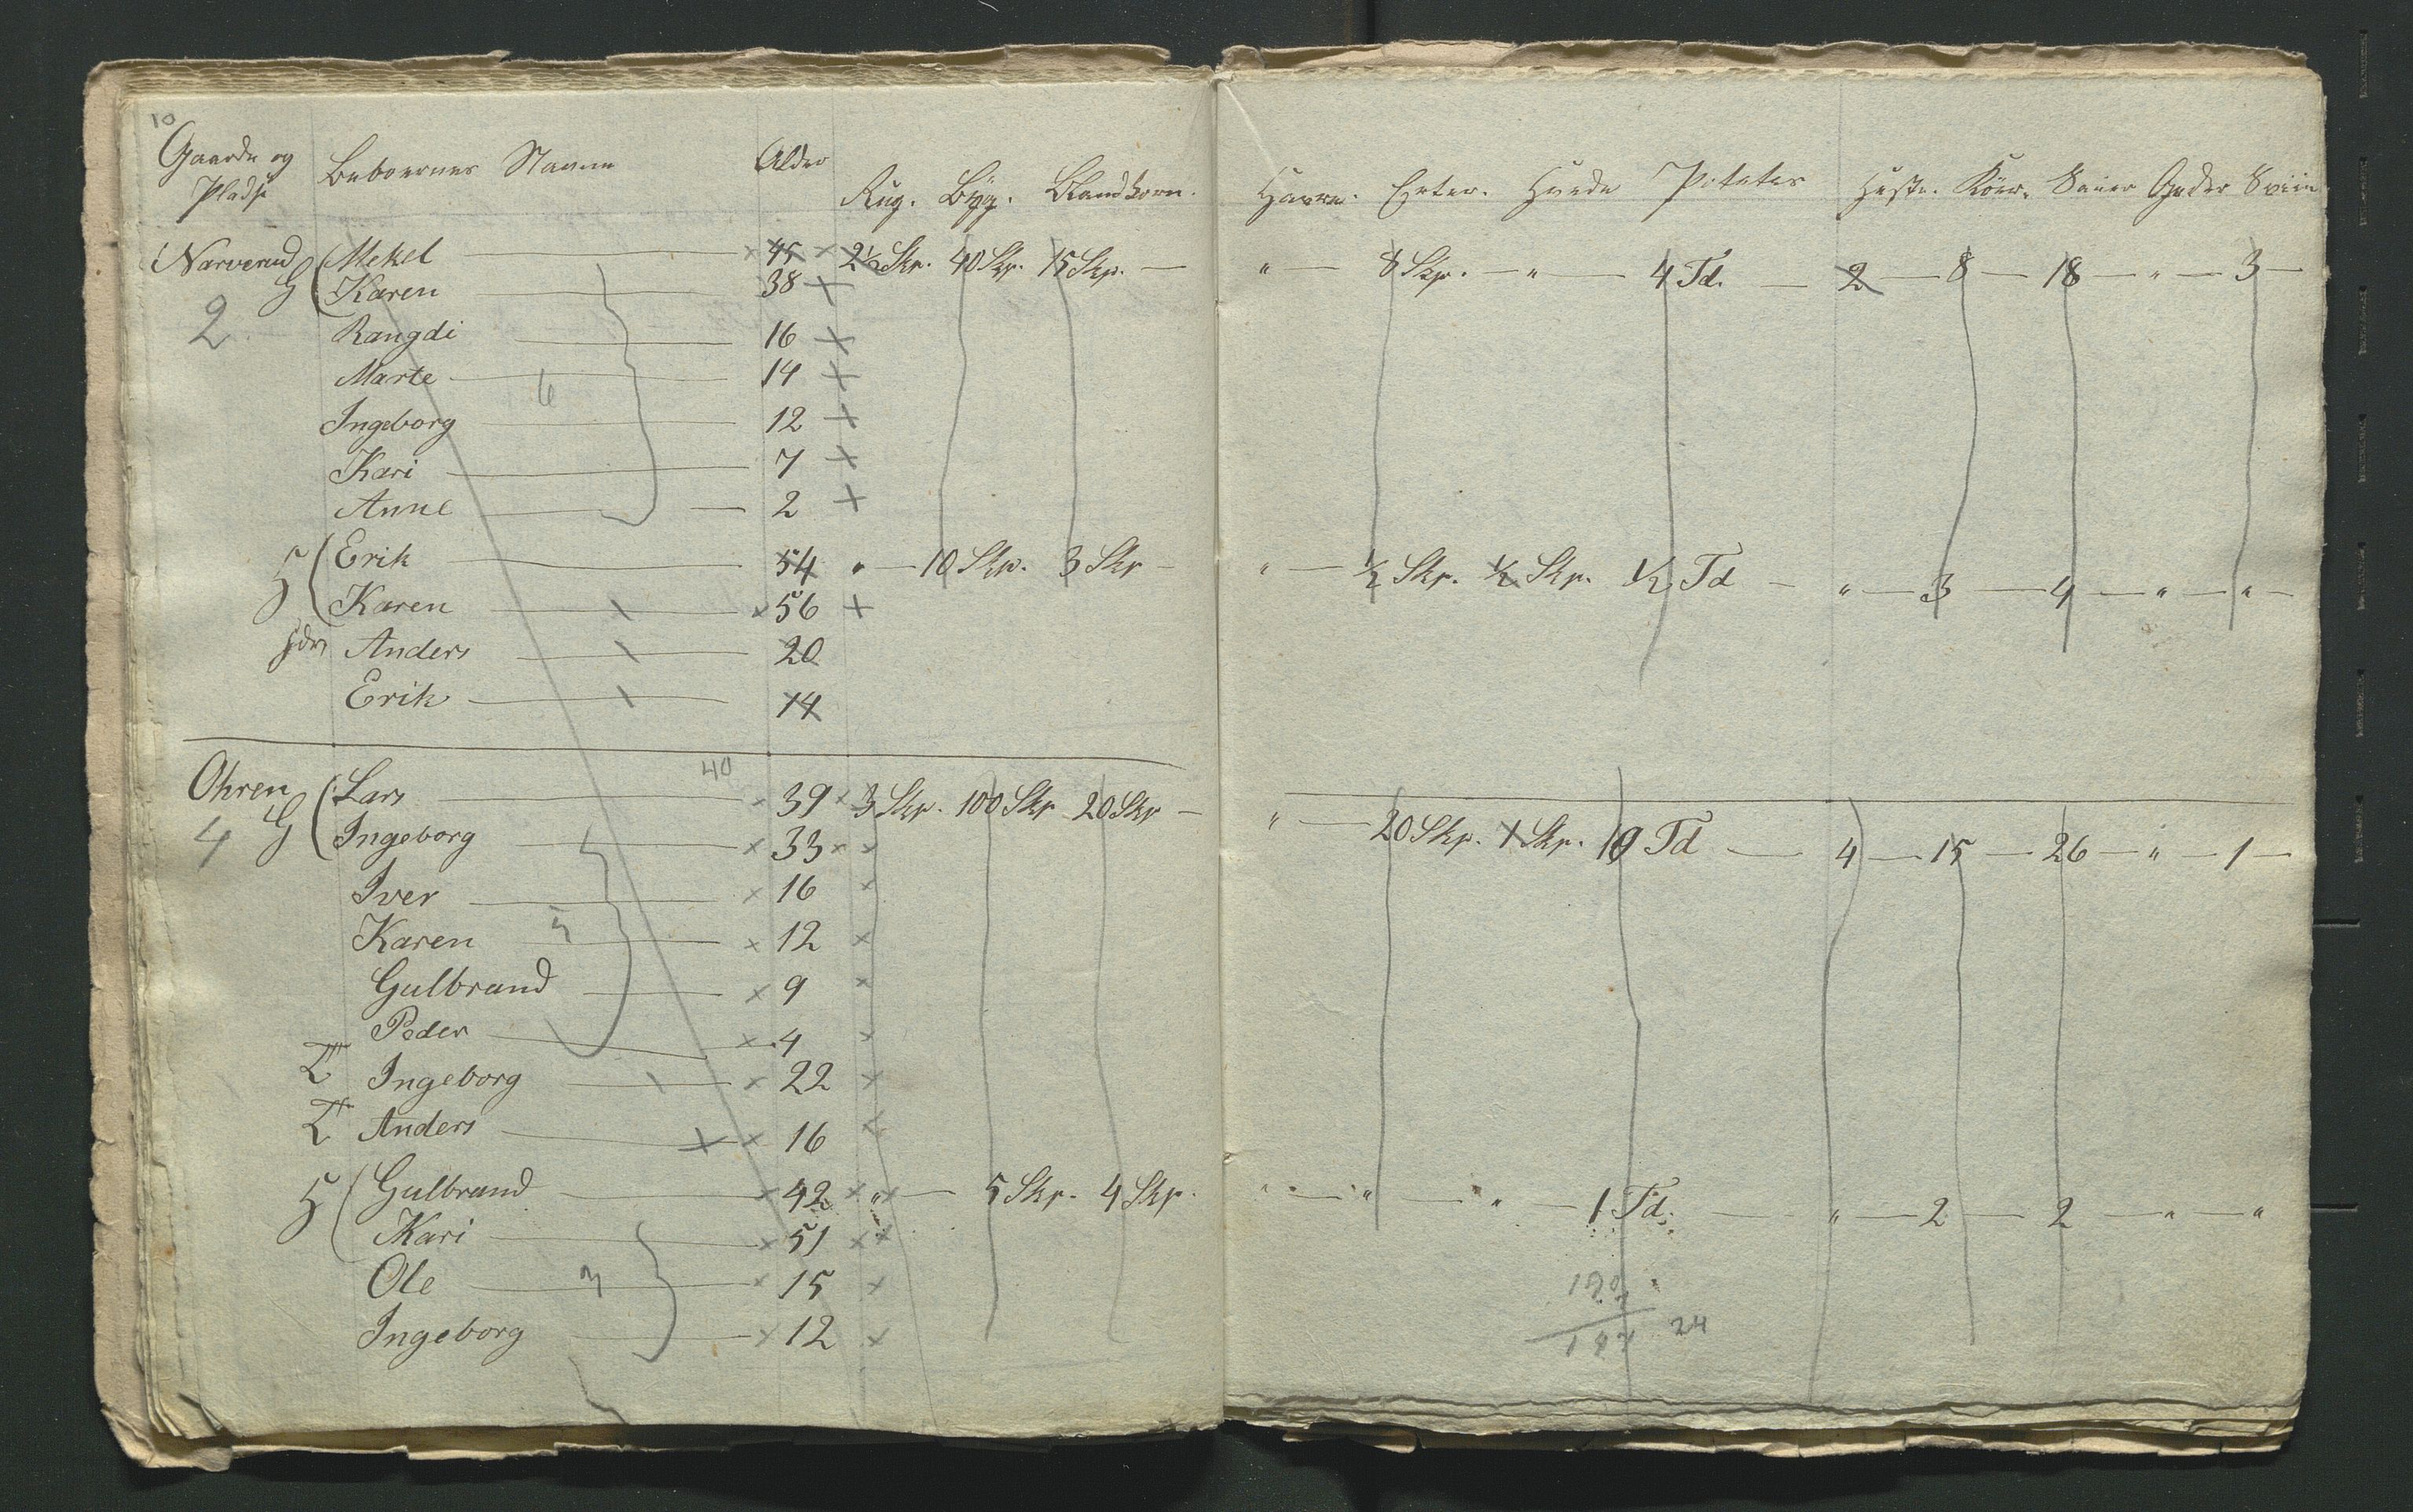 10
Gaarde og Pladse Beboernes Navne Alder Rug. Byg. Blandkorn. Havre. Erter. Hvede Potetes Heste. Köer. Sauer Geder Sviin
Narverud G Mekel 45 2½ Skp. 40 Skp. 15 Skp. — " — 8 Skp. — " — 4 Td. — 2 — 8 — 18 — " — 3 —
Karen 38
2 Rangdi 16
Marte 14
6
Ingeborg 12
Kari 7
Anne 2
H Erik 54 " — 10 Skp. 3 Skp — " — ½ Skp. ½ Skp. ½ Td — " — 3 — 4 — " — " —
Karen 56
Anders 20
Erik 14
40
Ohren G Lars 39 3 Skp. 100 Skp 20 Skp — " — 20 Skp. 1 Skp. 10 Td — 4 — 15 — 26 — " — 1 —
4 Ingeborg 33
Iver 16
Karen 12
5
Gulbrand 9
Peder 4
T Ingeborg 22
T Anders 16
H Gulbrand 42 " — 5 Skp. 4 Skp. " — " — " — 1 Td. — " — 2 — 2 — " — "
Kari 51
Ole 3 15
Ingeborg 12
24